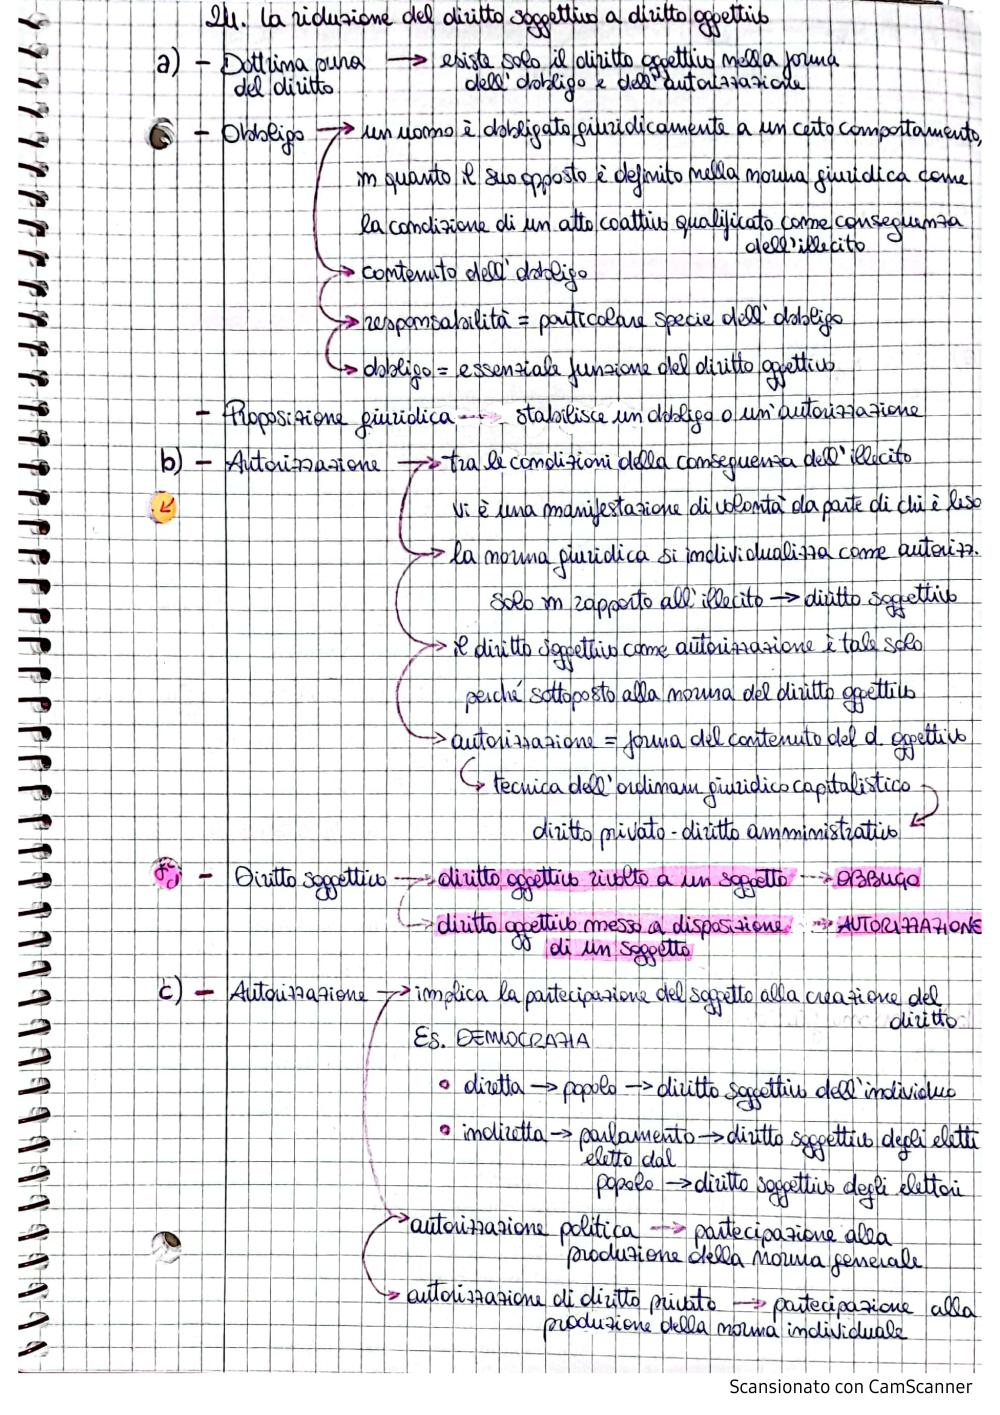 24. La riduzione del diritto soggettivo a diritto oggettivo
a) - Dottrina pura → esiste solo il diritto oggettivo nella forma
del diritto dell'obbligo e dell'autorizzazione
- Obbligo → un uomo è obbligato giuridicamente a un certo comportamento,
in quanto il suo opposto è definito nella norma giuridica come
la condizione di un atto coattivo qualificato come conseguenza
dell'illecito
→ contenuto dell'obbligo
→ responsabilità = particolare specie dell'obbligo
→ obbligo = essenziale funzione del diritto oggettivo
- Proposizione giuridica → stabilisce un obbligo o un'autorizzazione
b) - Autorizzazione → tra le condizioni della conseguenza dell'illecito
vi è una manifestazione di volontà da parte di chi è leso
→ la norma giuridica si individualizza come autorizz.
solo in rapporto all'illecito → diritto soggettivo
→ il diritto soggettivo come autorizzazione è tale solo
perché sottoposto alla norma del diritto oggettivo
→ autorizzazione = forma del contenuto del d. oggettivo
↳ tecnica dell'ordinam giuridico capitalistico
diritto privato - diritto amministrativo
- Diritto soggettivo → diritto oggettivo rivolto a un soggetto → OBBLIGO
→ diritto oggettivo messo a disposizione → AUTORIZZAZIONE
di un soggetto
c) - Autorizzazione → implica la partecipazione del soggetto alla creazione del
diritto
Es. DEMOCRAZIA
• diretta → popolo → diritto soggettivo dell'individuo
• indiretta → parlamento → diritto soggettivo degli eletti
eletto dal
popolo → diritto soggettivo degli elettori
→ autorizzazione politica → partecipazione alla
produzione della norma generale
→ autorizzazione di diritto privato → partecipazione alla
produzione della norma individuale
Scansionato con CamScanner